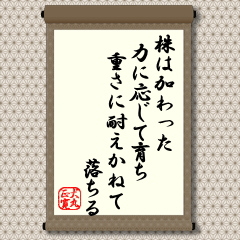 株は加わった
力に応じて育ち
重さに耐えかねて
落ちる